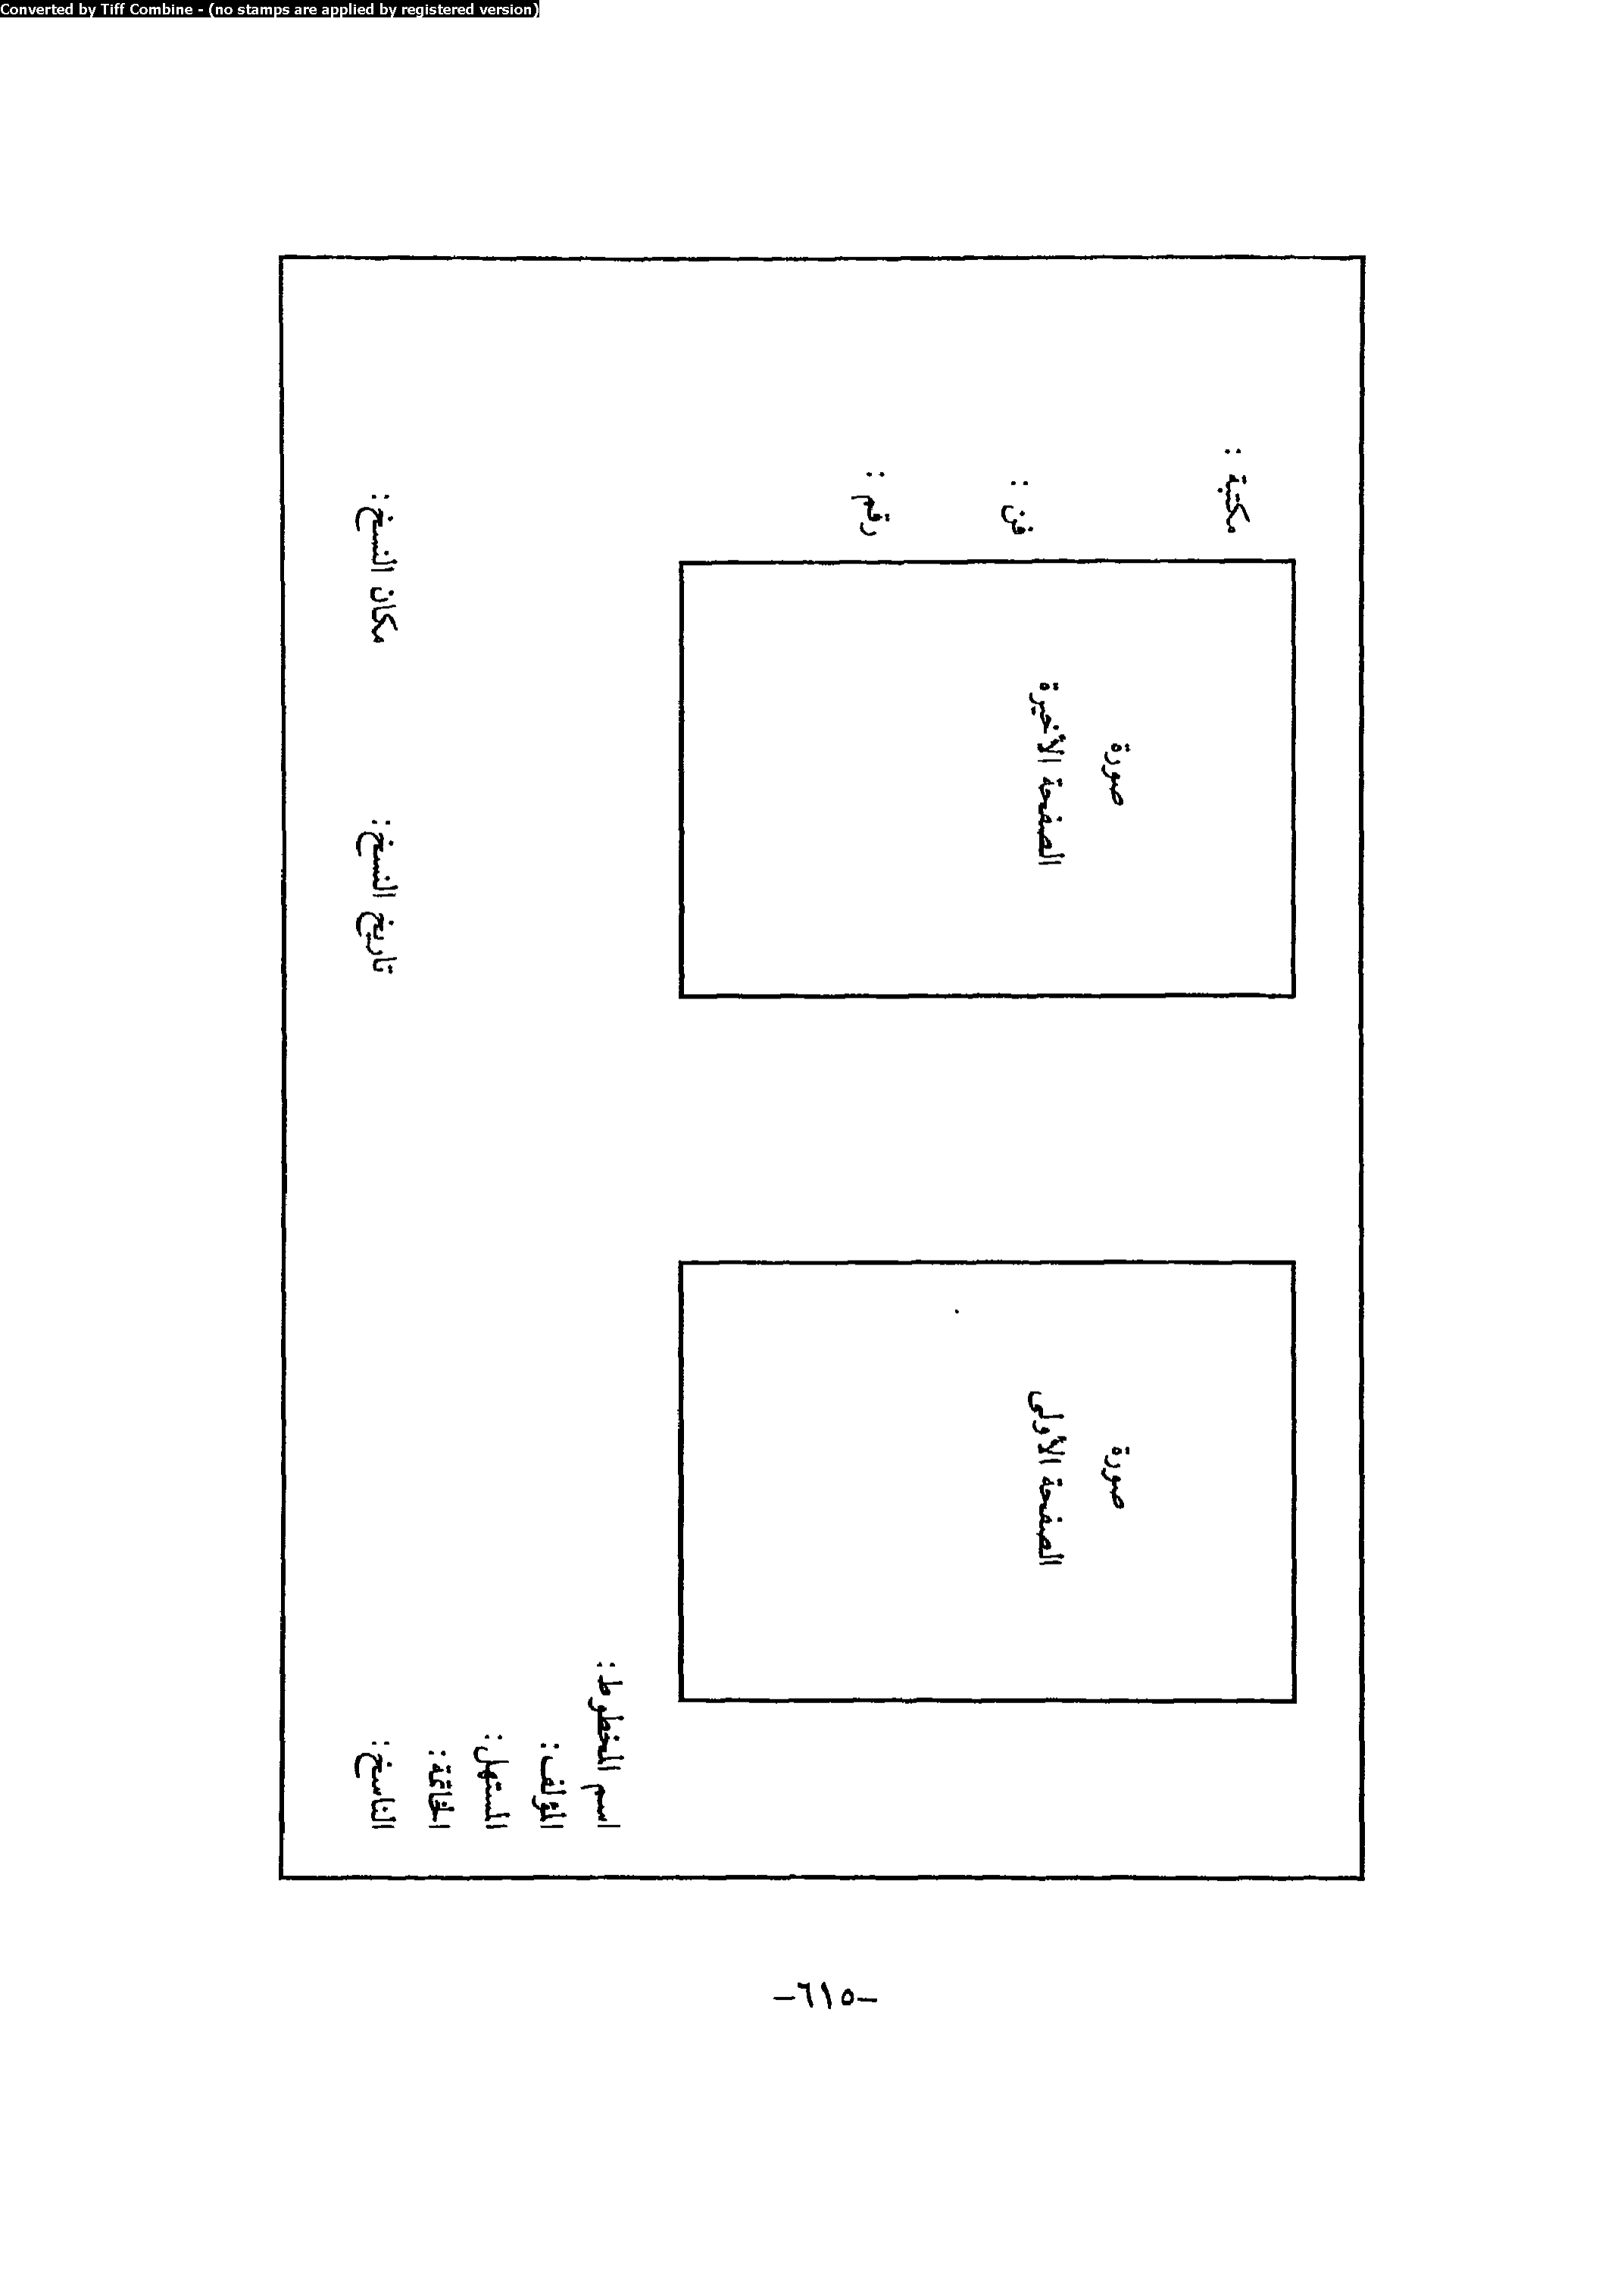 Converted by Tiff Combine - (no stamps are applied by registered version)
مكتبة :
فن :
رقم :
صورة
الصفحة الأولى
صورة
الصفحة الأخيرة
اسم المخطوط :
المؤلف :
المستهل :
الخاتمة :
الناسخ : تاريخ النسخ : مكان النسخ :
-٦١٥-